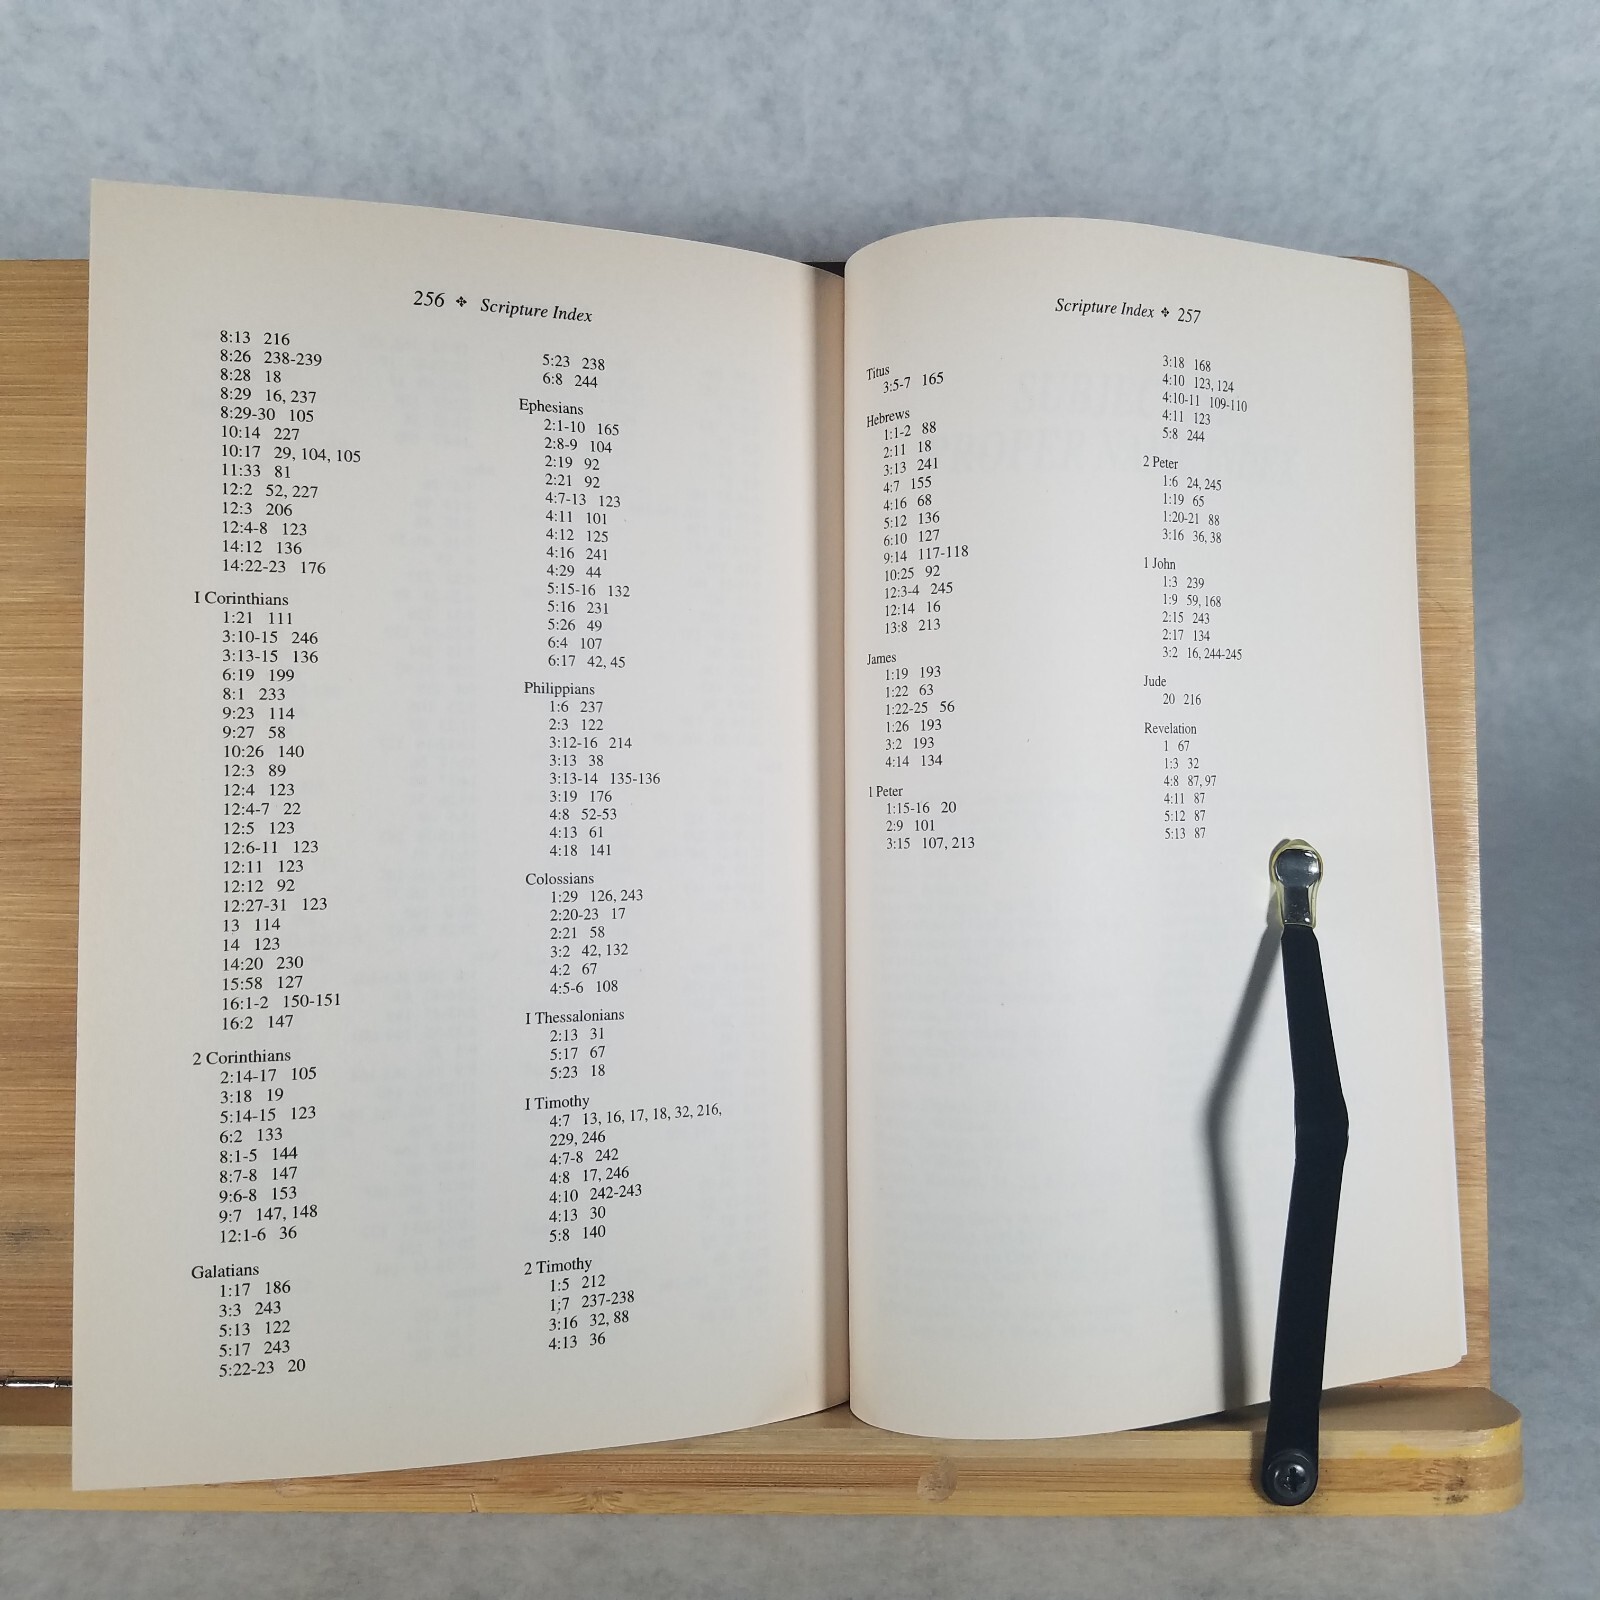 256 ✥ Scripture Index
8:13 216
8:26 238-239
8:28 18
8:29 16, 237
8:29-30 105
10:14 227
10:17 29, 104, 105
11:33 81
12:2 52, 227
12:3 206
12:4-8 123
14:12 136
14:22-23 176
I Corinthians
1:21 111
3:10-15 246
3:13-15 136
6:19 199
8:1 233
9:23 114
9:27 58
10:26 140
12:3 89
12:4 123
12:4-7 22
12:5 123
12:6-11 123
12:11 123
12:12 92
12:27-31 123
13 114
14 123
14:20 230
15:58 127
16:1-2 150-151
16:2 147
2 Corinthians
2:14-17 105
3:18 19
5:14-15 123
6:2 133
8:1-5 144
8:7-8 147
9:6-8 153
9:7 147, 148
12:1-6 36
Galatians
1:17 186
3:3 243
5:13 122
5:17 243
5:22-23 20
5:23 238
6:8 244
Ephesians
2:1-10 165
2:8-9 104
2:19 92
2:21 92
4:7-13 123
4:11 101
4:12 125
4:16 241
4:29 44
5:15-16 132
5:16 231
5:26 49
6:4 107
6:17 42, 45
Philippians
1:6 237
2:3 122
3:12-16 214
3:13 38
3:13-14 135-136
3:19 176
4:8 52-53
4:13 61
4:18 141
Colossians
1:29 126, 243
2:20-23 17
2:21 58
3:2 42, 132
4:2 67
4:5-6 108
I Thessalonians
2:13 31
5:17 67
5:23 18
I Timothy
4:7 13, 16, 17, 18, 32, 216,
229, 246
4:7-8 242
4:8 17, 246
4:10 242-243
4:13 30
5:8 140
2 Timothy
1:5 212
1:7 237-238
3:16 32, 88
4:13 36
Scripture Index ✥ 257
Titus
3:5-7 165
Hebrews
1:1-2 88
2:11 18
3:13 241
4:7 155
4:16 68
5:12 136
6:10 127
9:14 117-118
10:25 92
12:3-4 245
12:14 16
13:8 213
James
1:19 193
1:22 63
1:22-25 56
1:26 193
3:2 193
4:14 134
1 Peter
1:15-16 20
2:9 101
3:15 107, 213
3:18 168
4:10 123, 124
4:10-11 109-110
4:11 123
5:8 244
2 Peter
1:6 24, 245
1:19 65
1:20-21 88
3:16 36, 38
1 John
1:3 239
1:9 59, 168
2:15 243
2:17 134
3:2 16, 244-245
Jude
20 216
Revelation
1 67
1:3 32
4:8 87, 97
4:11 87
5:12 87
5:13 87